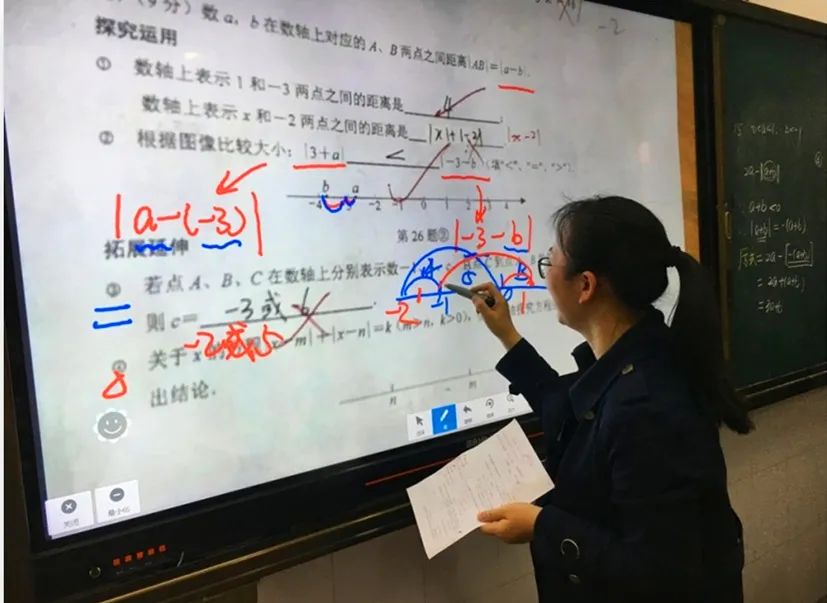 9分) 数 a, b 在数轴上对应的 A、B 两点之间距离|AB|=|a-b|.
-2
探究运用
① 数轴上表示 1 和-3 两点之间的距离是 4
数轴上表示 x 和-2 两点之间的距离是 |x|+|-2| |x-2|
② 根据图像比较大小: |3+a| < |-3-b| (填"<"、"="、">").
-4 b a -2 -1 2 3 4
|a-(-3)|
第 26 题② |-3-b|
拓展延伸
③ 若点 A、B、C 在数轴上分别表示数
则 c= -3或 6
-2或 5
-2 -1 1
关于 x |x-m|+|x-n|=k(m>n, k>0), 探究方程
出结论.
m n
关闭
最小化
2a-|a+b|
a+b<0
|a+b|=-(a+b)
=2a-[-(a+b)]
=2a+(a+b)
=3a+b